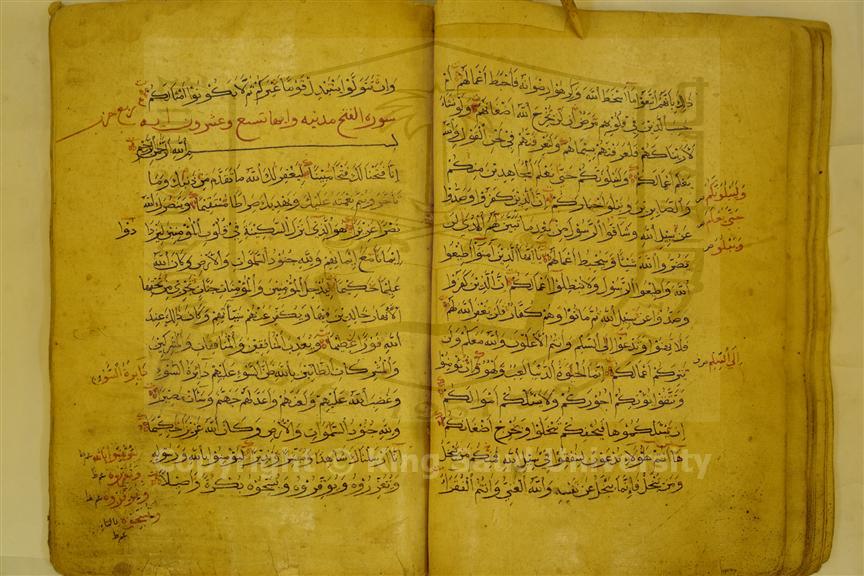 ذلك بانهم اتبعوا ما اسخط الله وكرهوا رضوانه فاحبط اعمالهم ام
حسب الذين في قلوبهم مرض ان لن يخرج الله اضغانهم ولو نشاء
لاريناكهم فلعرفتهم بسيماهم ولتعرفنهم في لحن القول والله
يعلم اعمالكم ولنبلونكم حتى نعلم المجاهدين منكم
والصابرين ونبلو اخباركم ان الذين كفروا وصدوا
عن سبيل الله وشاقوا الرسول من بعد ما تبين لهم الهدى لن
يضروا الله شيئا وسيحبط اعمالهم يا ايها الذين آمنوا اطيعوا
الله واطيعوا الرسول ولا تبطلوا اعمالكم ان الذين كفروا
وصدوا عن سبيل الله ثم ماتوا وهم كفار فلن يغفر الله لهم
فلا تهنوا وتدعوا الى السلم وانتم الاعلون والله معكم ولن
يتركم اعمالكم انما الحيوة الدنيا لعب ولهو وان تؤمنوا
وتتقوا يؤتكم اجوركم ولا يسئلكم اموالكم
ان يسئلكموها فيحفكم تبخلوا ويخرج اضغانكم
ها انتم هؤلاء تدعون لتنفقوا في سبيل الله فمنكم من يبخل
ومن يبخل فانما يبخل عن نفسه والله الغني وانتم الفقراء
وليبلونكم
حتى يعلم
ويبلو
الى السلم
وان تتولوا يستبدل قوما غيركم ثم لا يكونوا امثالكم
سورة الفتح مدنية وايها تسع وعشرون آية
بسم الله الرحمن الرحيم
انا فتحنا لك فتحا مبينا ليغفر لك الله ما تقدم من ذنبك وما
تاخر ويتم نعمته عليك ويهديك صراطا مستقيما وينصرك الله
نصرا عزيزا هو الذي انزل السكينة في قلوب المؤمنين ليزدادوا
ايمانا مع ايمانهم ولله جنود السموات والارض وكان الله
عليما حكيما ليدخل المؤمنين والمؤمنات جنات تجري من تحتها
الانهار خالدين فيها ويكفر عنهم سيئاتهم وكان ذلك عند
الله فوزا عظيما ويعذب المنافقين والمنافقات والمشركين
والمشركات الظانين بالله ظن السوء عليهم دايرة السوء
وغضب الله عليهم ولعنهم واعد لهم جهنم وساءت مصيرا
ولله جنود السموات والارض وكان الله عزيزا حكيما
انا ارسلناك شاهدا ومبشرا ونذيرا لتؤمنوا بالله ورسوله
وتعزروه وتوقروه وتسبحوه بكرة واصيلا
دايرة السوء
ليؤمنوا بالله
ويعزروه
ويوقروه
ويسبحوه بالياء
Copyright © King Saud University